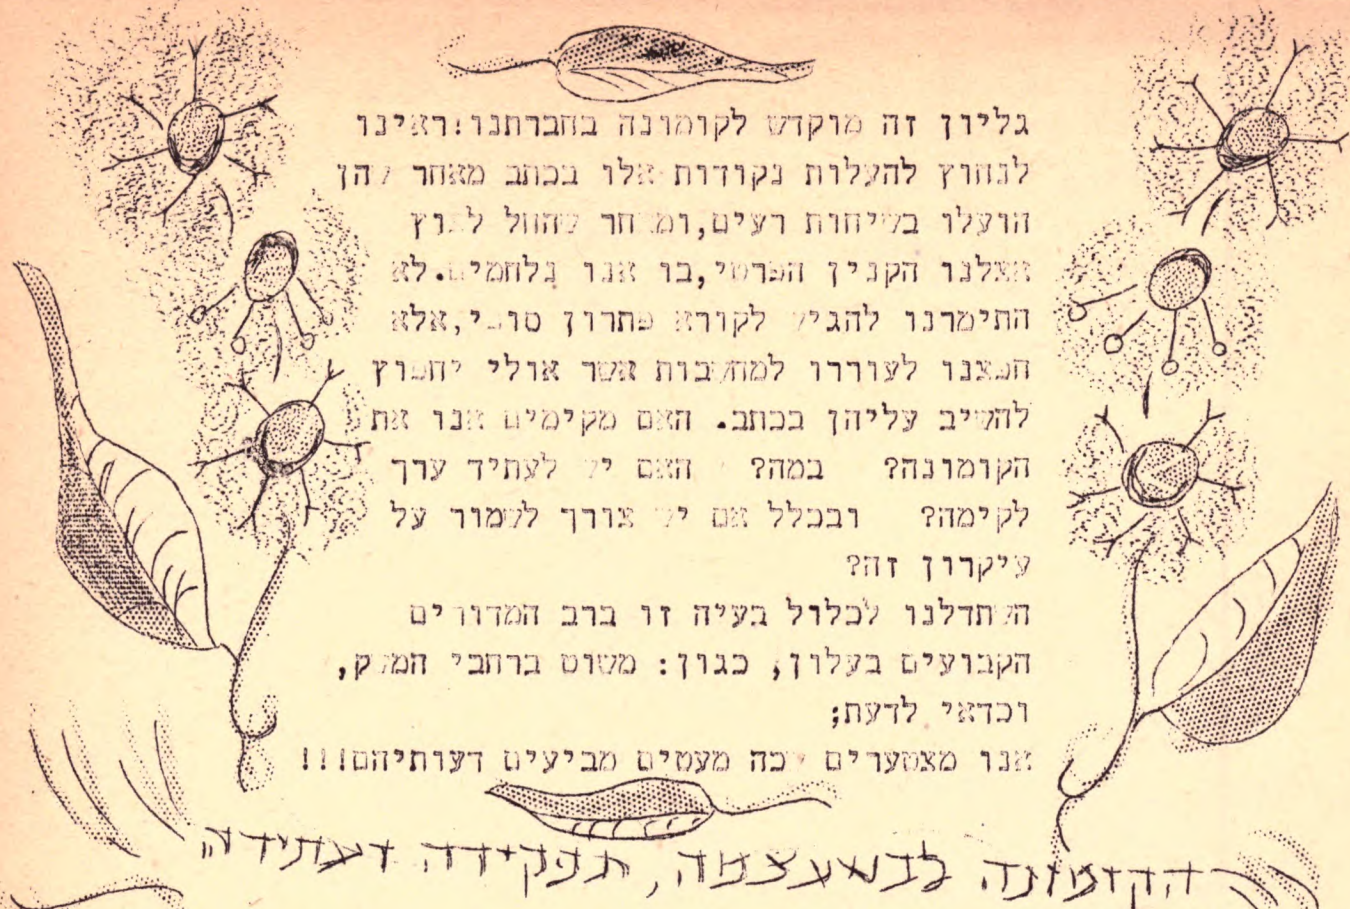 גליון זה מוקדש לקומונה בחברתנו: ראינו
לנחוץ להעלות נקודות אלו בכתב מאחר שהן
הועלו בשיחות רעים, ומאחר שהחל לצוץ
אצלנו הקנין הפרטי, בו אנו נלחמים. לא
התימרנו להגיש לקורא פתרון סופי, אלא
חפצנו לעוררו למחשבות אשר אולי יחפוץ
להשיב עליהן בכתב. האם מקימים אנו את
הקומונה? במה? האם יש לעתיד ערך
לקימה? ובכלל אם יש צורך לשמור על
עיקרון זה?
השתדלנו לכלול בעיה זו ברב המדורים
הקבועים בעלון, כגון: משוט ברחבי המשק,
וכדאי לדעת;
אנו מצטערים שכה מעטים מביעים דעותיהם!!!
הקומונה לכשעצמה, תפקידה ועתידה